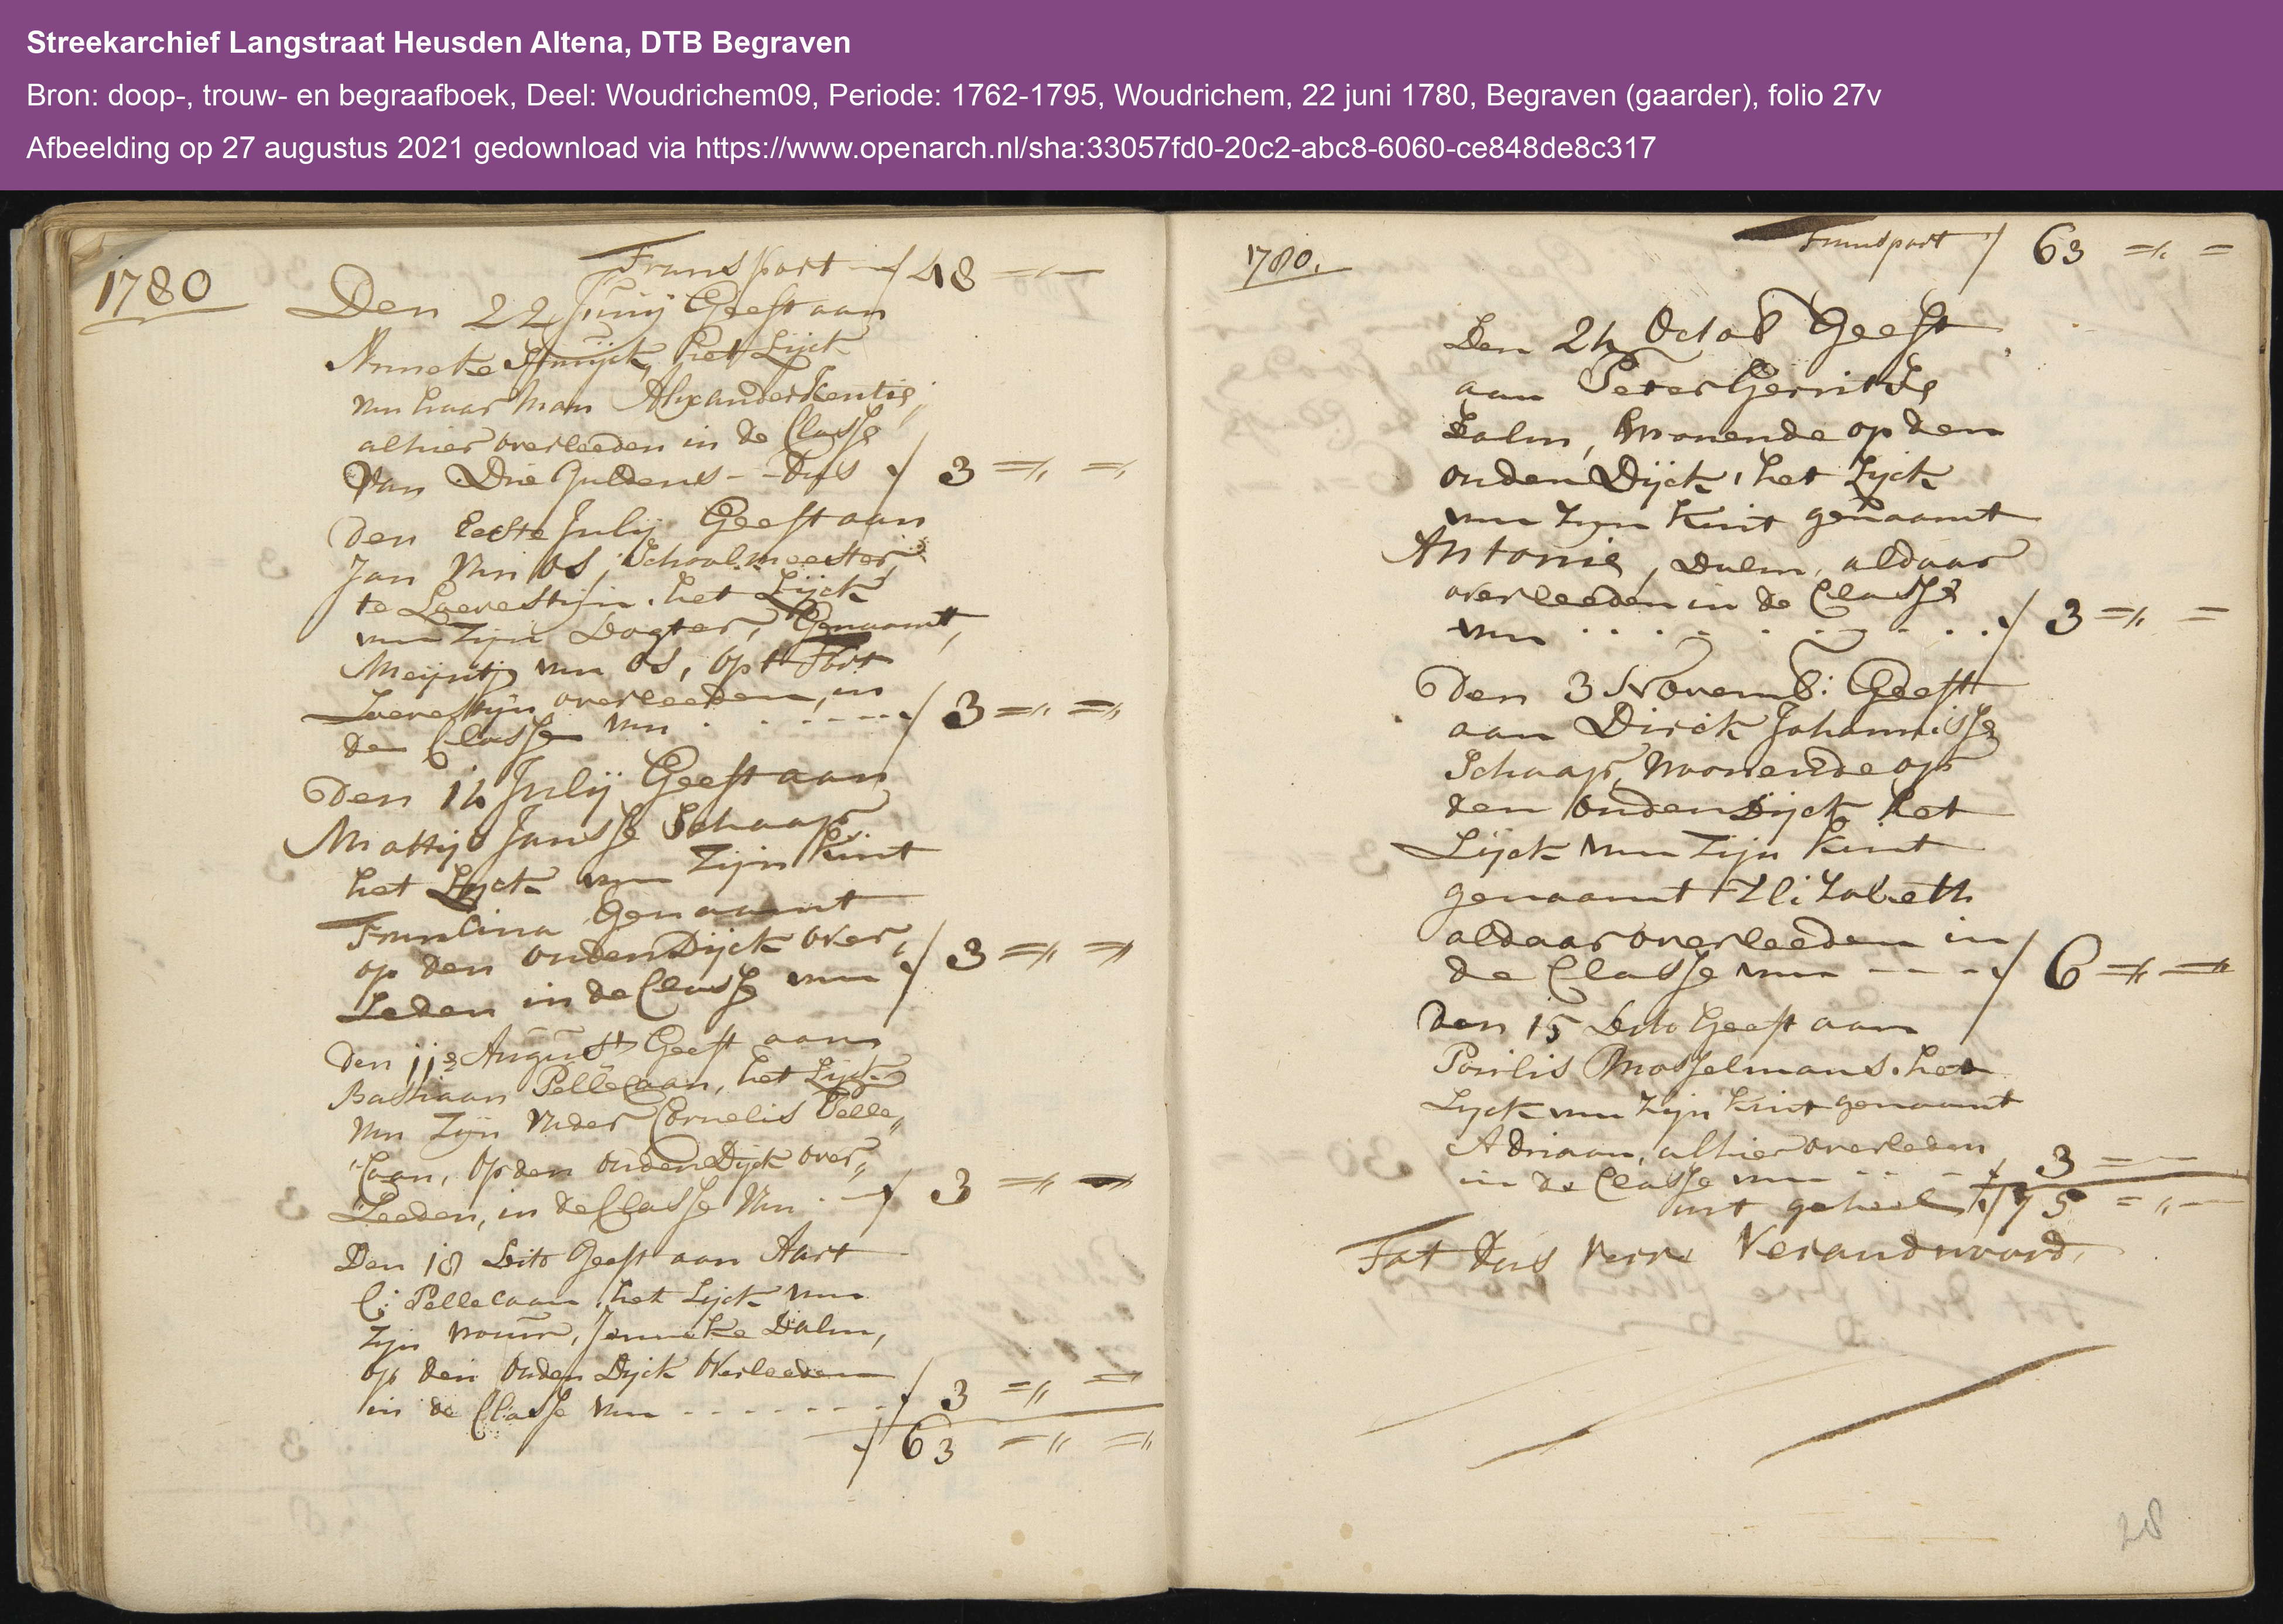 Streekarchief Langstraat Heusden Altena, DTB Begraven
Bron: doop-, trouw- en begraafboek, Deel: Woudrichem09, Periode: 1762-1795, Woudrichem, 22 juni 1780, Begraven (gaarder), folio 27v
Afbeelding op 27 augustus 2021 gedownload via https://www.openarch.nl/sha:33057fd0-20c2-abc8-6060-ce848de8c317
1780
Transport f 48 = —
Den 22 Junij Geeft aan
Anneke het Lijck
van haar man Alexander Kentie
alhier overleeden in de Classe
Van Drie Guldens -- Dus f 3 =,, =,,
Den Eerste Julij Geeft aan
Jan van Os, Schoolmeester
te Loevestijn, het Lijck
van Zijn Dogter, Genaamt,
Meijntje van Os, op t Fort
Loevestijn overleeden, in
de Classe van . . - - - - f 3 =,, =,,
Den 14 Julij Geeft aan
Mattijs Janse Schaap
het Lijck van Zijn Kint
Genaamt
op den ouden Dijck over,,
Leden in de Classe van f 3 =,, =,,
Den 11e August Geeft aan
Bastiaan Pellecaan, het Lijck
van Zijn Vader Cornelis Pelle,,
Caan, op den ouden Dijck over,,
Leeden, in de Classe Van . — f 3 =,, =,,
Den 18 Dito Geeft aan Aart
C: Pellecaan, het Lijck van
Zijn vrouw, Jenneke Dalm,
op den ouden Dijck overleeden
in de Classe van - - - - - - - f 3 =,, =
f 63 =,, =,,
1780.
Transport f 63 =,, =
Den 24 Octob Geeft
aan Peter Gerritse
Dalm, Woonende op den
ouden Dijck, het Lijck
van Zijn Kint genaamt
Antonie, Dalm, aldaar
overleeden in de Classe
van . . . . . . . . . f 3 =,, =
Den 3 Novemb: Geeft
aan Dirck Johannisse
Schaap, Woonende op
den ouden Dijck het
Lijck van Zijn Kint
genaamt Elizabeth
aldaar overleeden in
de Classe van - - - f 6 =,, =,,
Den 15 Dito Geeft aan
Mosselmans. het
Lyck van Zijn Kint genaamt
Adriaan, alhier overleden
in de Classe van f 3 = —
uit geheel f 75 = ,, —
Tot Dus Verre Verandwoord,
28